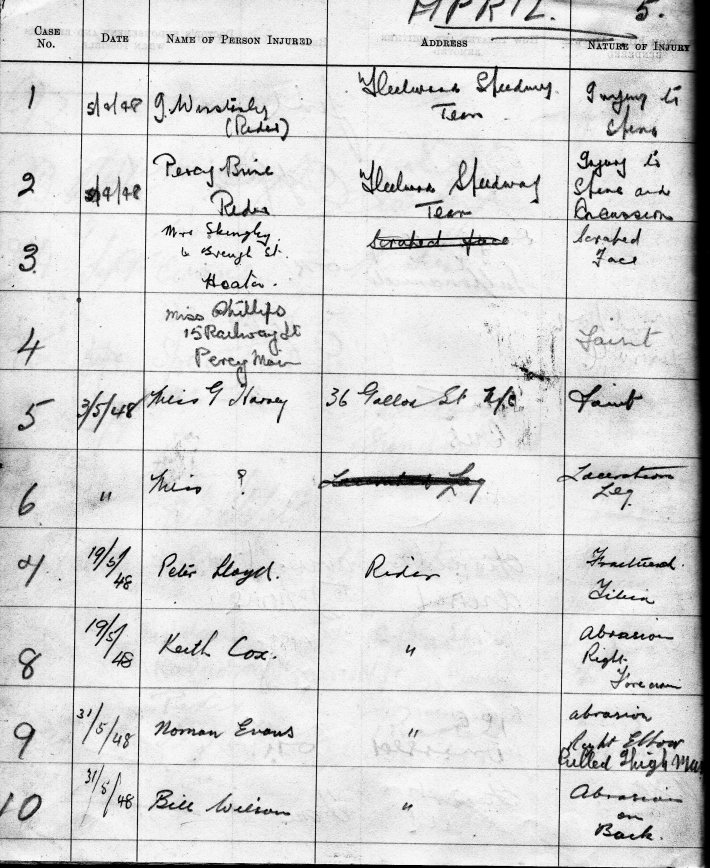 APRIL. 5.
CASE No. DATE NAME OF PERSON INJURED ADDRESS NATURE OF INJURY
1 5/4/48 G. (Rider) Fleetwood Speedway Team Injury to Spine
2 5/4/48 Percy Brine Rider Fleetwood Speedway Team Injury to Spine and Concussion
3 Mrs 6 St. Scraped face Scraped Face
4 Miss Phillips 15 Railway St Percy Main Faint
5 3/5/48 Miss G Harvey 36 St N/C Faint
6 " Miss ? Lacerated Leg Laceration Leg
7 19/5/48 Peter Lloyd. Rider Fractured Tibia
8 19/5/48 Keith Cox. " Abrasion Right Forearm
9 31/5/48 Norman Evans " abrasion Right Elbow Pulled Thigh
10 31/5/48 Bill Wilson " Abrasion on Back.